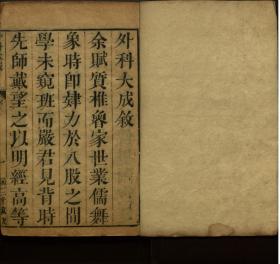 外科大成敘
余賦質椎魯家世業儒舞
象時卽肄力於八股之間
學未窺班而嚴君見背時
先師戴望之以明經高等